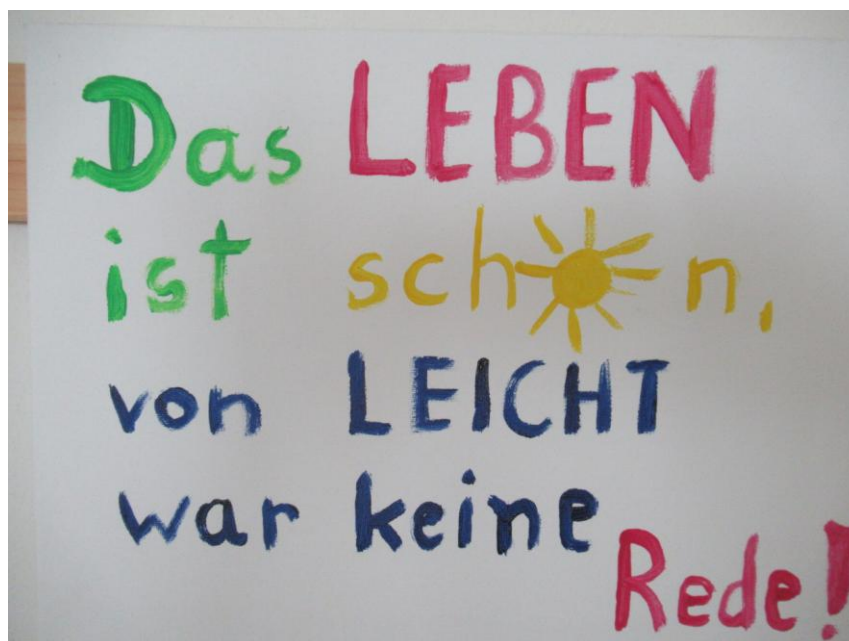 Das LEBEN
ist schön,
von LEICHT
war keine
Rede!